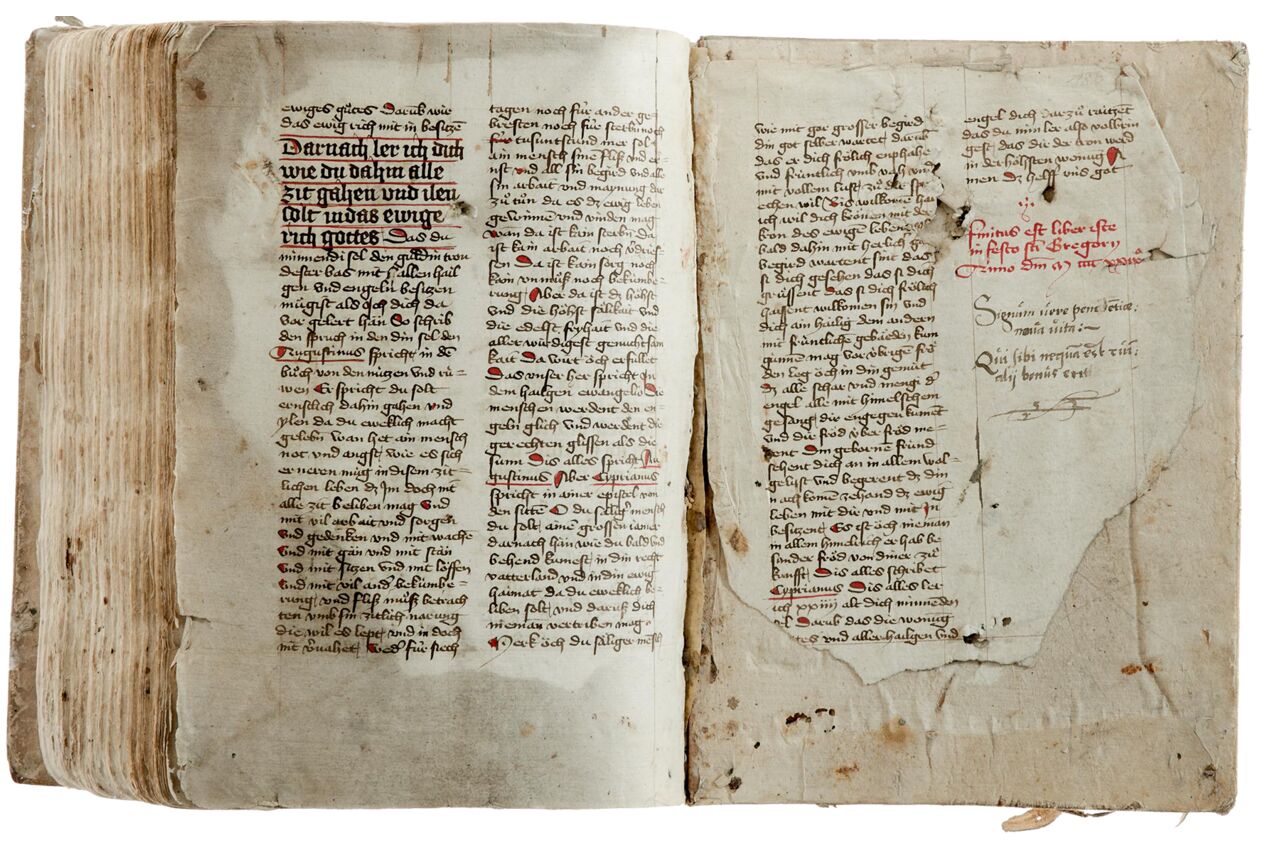 ewiges gůtes Darūb wie
das ewig rich mit in besitzē
Darnach ler ich dich
wie du dahin alle
zit gahen vnd ilen
solt in das ewige
rich gottes Das du
minnendi sel den guldin tron
dester bas mit allen hail
gen vnd engeln besitzen
mūgist als ich dich da
vor gelert han So schrib
den spruch in den din sel den
Augustinus spricht in dē
bůch von den nützen vnd rü
wen Er spricht du solt
ernstlich dahin gahen vnd
ylen da du eweklich macht
gelebn wan het ain mensch
not vnd angst wie es sich
erneren mug in disem zit
lichen leben dz Im doch nit
alle zit beliben mag Vnd
mit vil arbait vnd sorgen
vnd gedenken vnd mit wache
vnd mit gan vnd mit stan
vnd mit sitzen vnd mit löffen
vnd mit vil and bekūmbe
rung vnd fliß můß betrach
ten vmb sin zitlich narung
die wil es lept vnd in doch
nit wed für siech
tagen noch für ander ge
bresten noch für sterbn noch
für tusuntstund mer sol
ain mensch sine fliß vnd er
nst vnd all sin begird vnd alle
sin arbait vnd maynung dar
zů tůn da es dz ewig leben
gewinnen vnd vinden mag
wan da ist kain sterbn Da
ist kain arbait noch vdries
sen Da ist kain sorg noch
kain vnmůß noch bekūmbe
rung Aber da ist dz höhst
vnd die höhst sälikait vnd
die edelst fryhait vnd die
aller wirdigest genuchtsam
kait Da wirt öch erfüllet
Das vnser her spricht In
dem hailgen ewangelio Die
menschen werdent den en
geln glich Vnd werdent die
gerechten glissen als die
sunn Dis alles spricht Au
gustinus Aber Cyprianus
spricht in ainer epistel von
den sittē O du sälig mensch
du solt ainē grossen iamer
darnach han wie du bald vnd
behend kumest in din recht
vatterland vnd in din ewig
haimat da du eweklich be
liben solt vnd daruß dich
nieman vertriben mag
Merk öch du säliger mēsch
wie mit gar grosser begird
din got selber wartet darūb
das er dich frölich enphahe
vnd früntlich vmbvah vnd
mit vollem lust zů dir spr
echen wil Bis wilkomen har
ich wil dich krönen mit der
kron des ewigen lebens
bald dahin mit herlich
begird wartent sint das
si dich gesehen das si dich
grüssent das si dich frölich
haisent wilkomen sin vnd
dich ain hailig dem andern
mit früntliche gebärden kun
gunnen mag vor vbrigen frö
den leg öch in din gemüt
dz alle schar vnd mengi d
engel alle mit himelschem
gesang dir engegen kumēt
vnd die fröd vber fröd me
rent Din gebornē fründ
sehent dich an in allem wol
gelust vnd begerent dz din
nach komē zehand dz ewig
leben mit dir vnd mit In
besitzent Es ist öch nieman
in allem himelrich er hab be
sunder fröd von diner zů
kunfft Dis alles schribet
Cyprianus Dis alles ler
ich xxiiii alt dich minnēden
sel Darūb das die wonung
vnd aller hailgen vnd
engel dich darzů raitzēt
das du min ler also volbrin
gest das dir der tron werd
in der höhsten wonung A
men dz helf vns got
finitus est liber iste
in festo sci Gregorij
Anno dm
Signum vere penitentiae
noua vita:~
Qui sibi nequa est cui
alij bonus erit